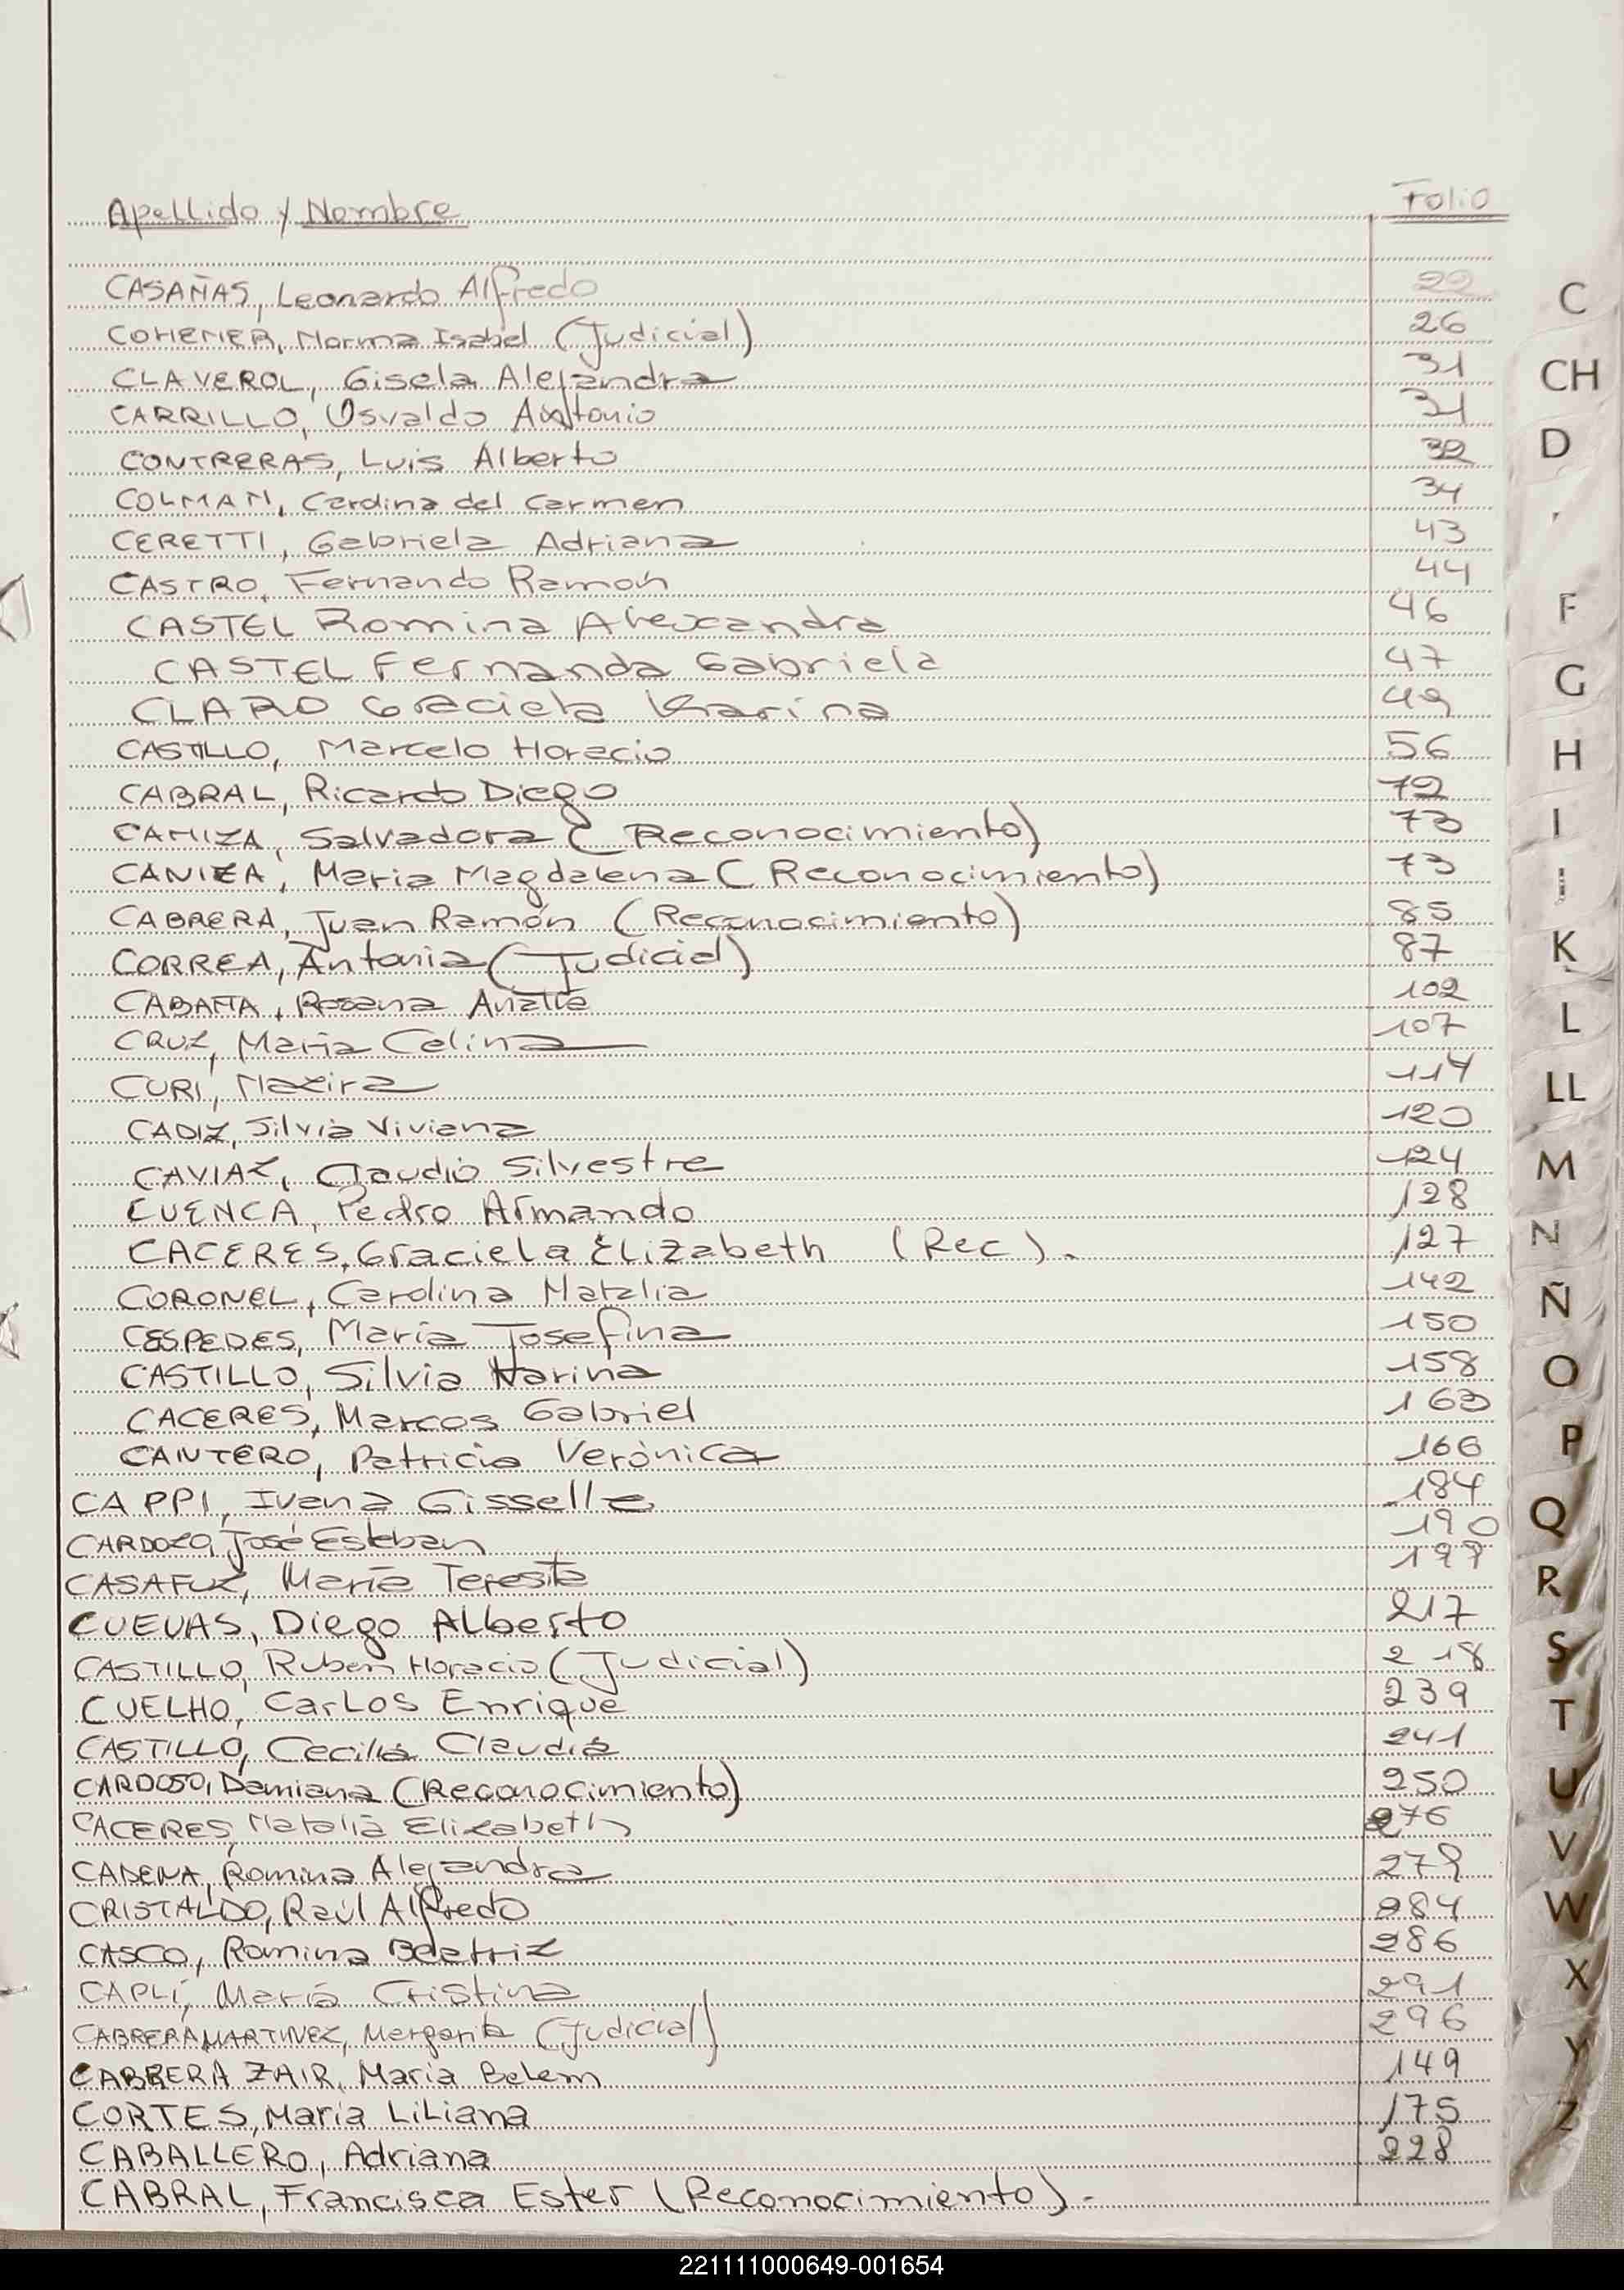 Apellido y Nombre Folio
CASAÑAS, Leonardo Alfredo 22
COHENER, Norma Isabel (Judicial) 26
CLAVEROL, Gisela Alejandra 31
CARRILLO, Osvaldo Antonio 31
CONTRERAS, Luis Alberto 32
COLMAN, Carolina del Carmen 34
CERETTI, Gabriela Adriana 43
CASTRO, Fernando Ramón 44
CASTEL Romina Alexandra 46
CASTEL Fernanda Gabriela 47
CLARO Graciela Karina 49
CASTILLO, Marcelo Horacio 56
CABRAL, Ricardo Diego 72
CAÑIZA, Salvadora (Reconocimiento) 73
CANIZA, Maria Magdalena (Reconocimiento) 73
CABRERA, Juan Ramón (Reconocimiento) 85
CORREA, Antonia (Judicial) 87
CABAÑA, Rosana Analía 102
CRUZ, María Celina 107
CURI, Nazira 114
CADIZ, Silvia Viviana 120
CAVIAZ, Claudio Silvestre 124
CUENCA, Pedro Armando 128
CACERES, Graciela Elizabeth (Rec). 127
CORONEL, Carolina Natalia 142
CESPEDES, María Josefina 150
CASTILLO, Silvia Narina 158
CACERES, Marcos Gabriel 163
CANTERO, Patricia Verónica 166
CAPPI, Ivana Gisselle 184
CARDOZO, José Esteban 190
CASAFUZ, María Teresita
CUEVAS, Diego Alberto 217
CASTILLO, Ruben Horacio (Judicial) 218
CUELHO, Carlos Enrique 239
CASTILLO, Cecilia Claudia 241
CARDOSO, Damiana (Reconocimiento) 250
CACERES, Natalia Elizabeth 276
CADENA, Romina Alejandra 279
CRISTALDO, Raúl Alfredo 284
CASCO, Romina Beatriz 286
CAPLI, María Cristina 291
CABRERA MARTINEZ, Margarita (Judicial) 296
CABRERA ZAIR, Maria Belem 149
CORTES, Maria Liliana 175
CABALLERO, Adriana 228
CABRAL, Francisca Ester (Reconocimiento).-
C
CH
D
F
G
H
I
K
L
LL
M
N
Ñ
O
P
Q
R
S
T
U
V
W
X
Y
Z
221111000649-001654